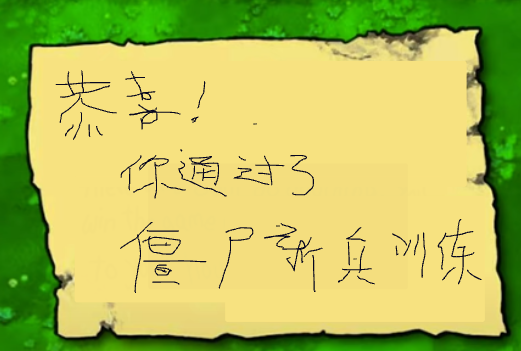 恭喜!
你通过了
僵尸新兵训练